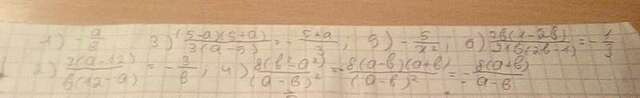 1) -a/b 3) (5-a)(5+a)/3(a-5) = -5+a/3; 5) -5/x²; 6) 7b(x-2b)/21b(2b-x) = -1/3
2) 7(a-12)/b(12-a) = -7/b; 4) 8(b²-a²)/(a-b)² = -8(a-b)(a+b)/(a-b)² = -8(a+b)/a-b